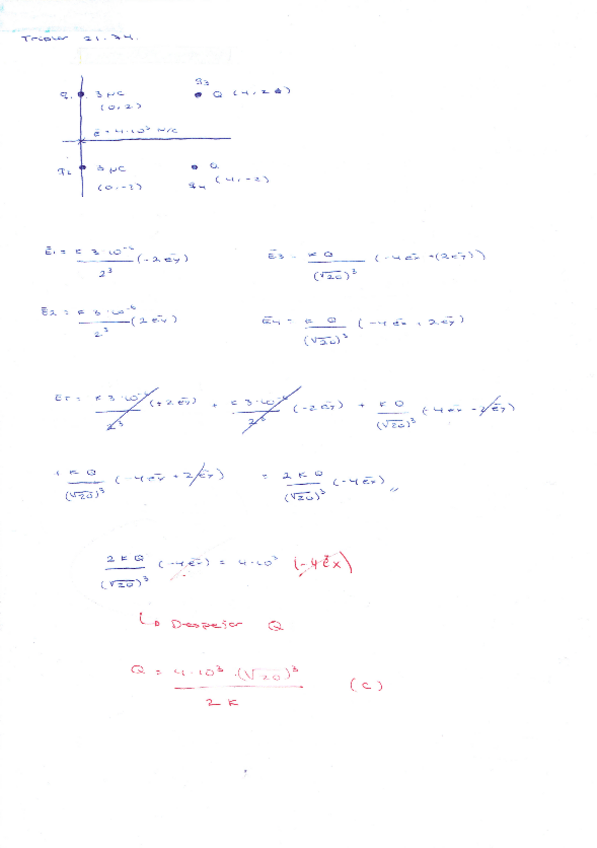 Tipler 21.74.
q₁ 3 nC q₃ Q (4,2)
(0,2)
E = 4·10³ N/C
q₂ 3 nC Q
(0,-2) q₄ (4,-2)
E̅₁ = K 3·10⁻⁶/2³ (-2e̅y) E̅₃ = KQ/(√20)³ (-4e̅x +(2e̅y))
E̅₂ = K 3·10⁻⁶/2³ (2e̅y) E̅₄ = KQ/(√20)³ (-4e̅x + 2e̅y)
E_T = K 3·10⁻⁶/2³ (+2e̅y) + K 3·10⁻⁶/2³ (-2e̅y) + KQ/(√20)³ (-4e̅x - 2e̅y)
+ KQ/(√20)³ (-4e̅x + 2e̅y) = 2KQ/(√20)³ (-4e̅x)
2KQ/(√20)³ (-4e̅x) = 4·10³ (-4e̅x)
↳ Despejar Q
Q = 4·10³·(√20)³/2K (C)